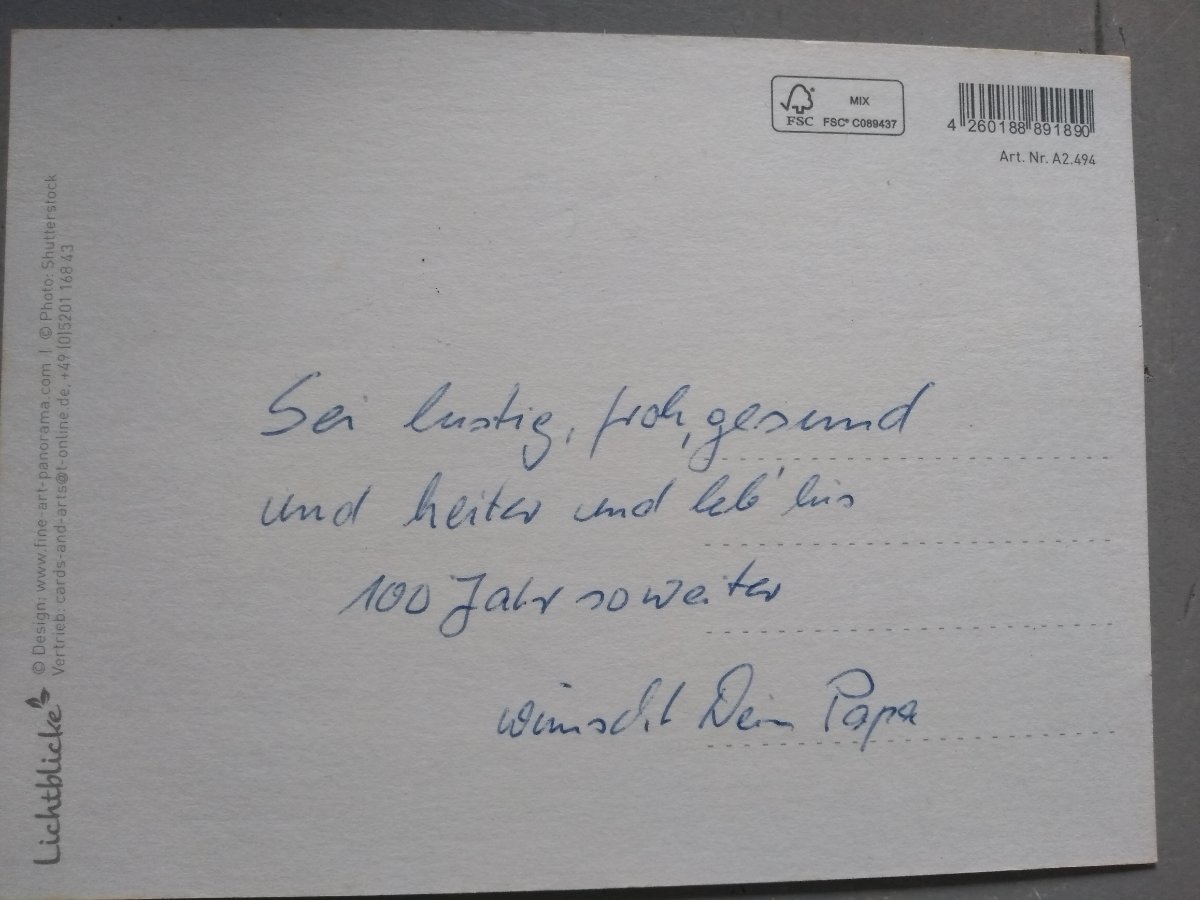 MIX
FSC FSC® C089437
4 260188 891890
Art. Nr. A2.494
Sei lustig, froh, gesund
und heiter und leb' bis
100 Jahr so weiter
wünscht Dein Papa
Lichtblicke
© Design: www.fine-art-panorama.com | © Photo: Shutterstock
Vertrieb: cards-and-arts@t-online.de, +49 (0)5201 168 43